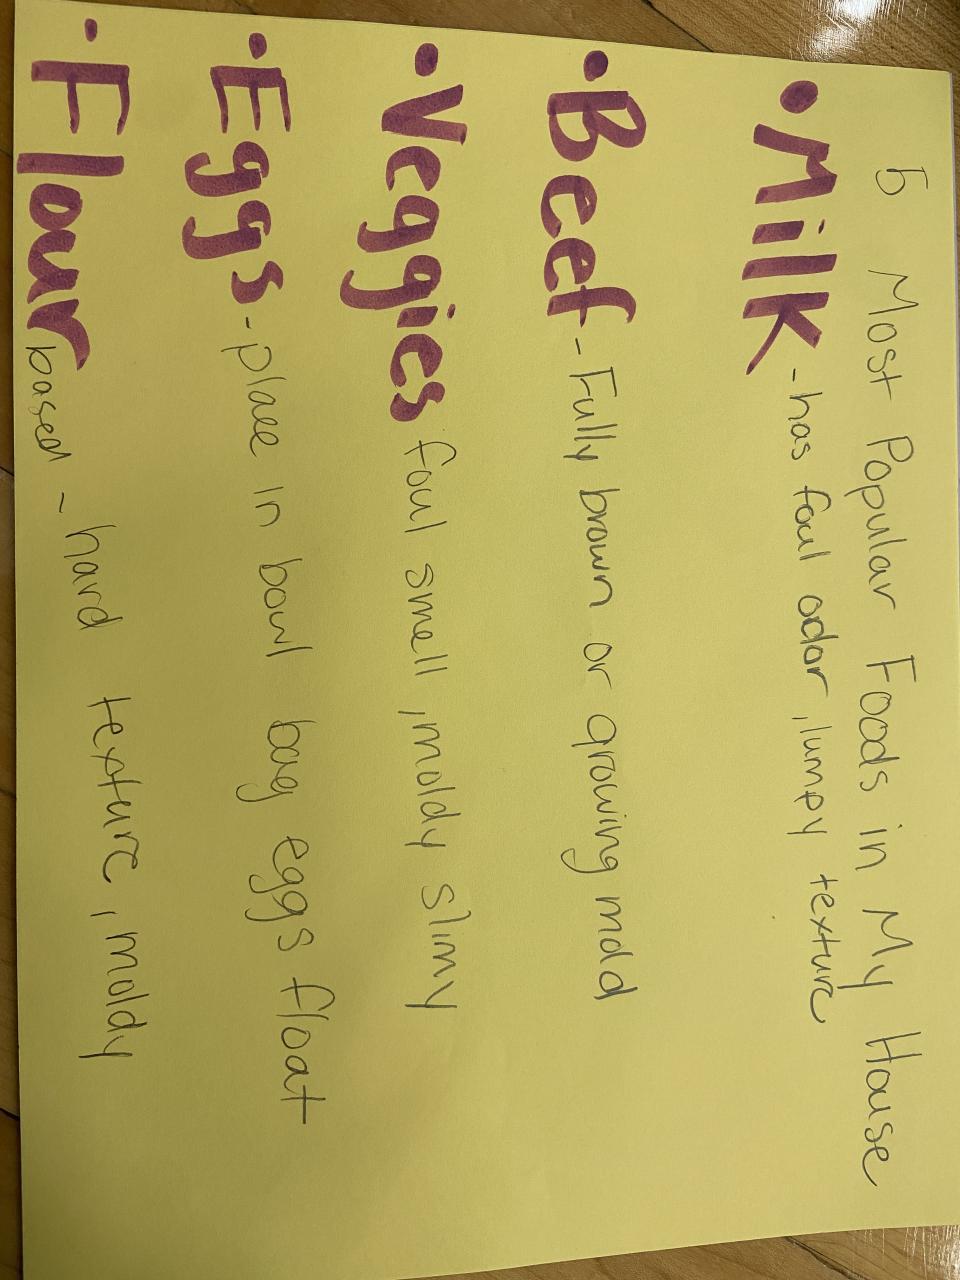 5 Most Popular Foods in My House
• Milk - has foul odor, lumpy texture
• Beef - Fully brown or growing mold
• Veggies foul smell, moldy slimy
• Eggs - place in bowl bag eggs float
• Flour based - hard texture, moldy